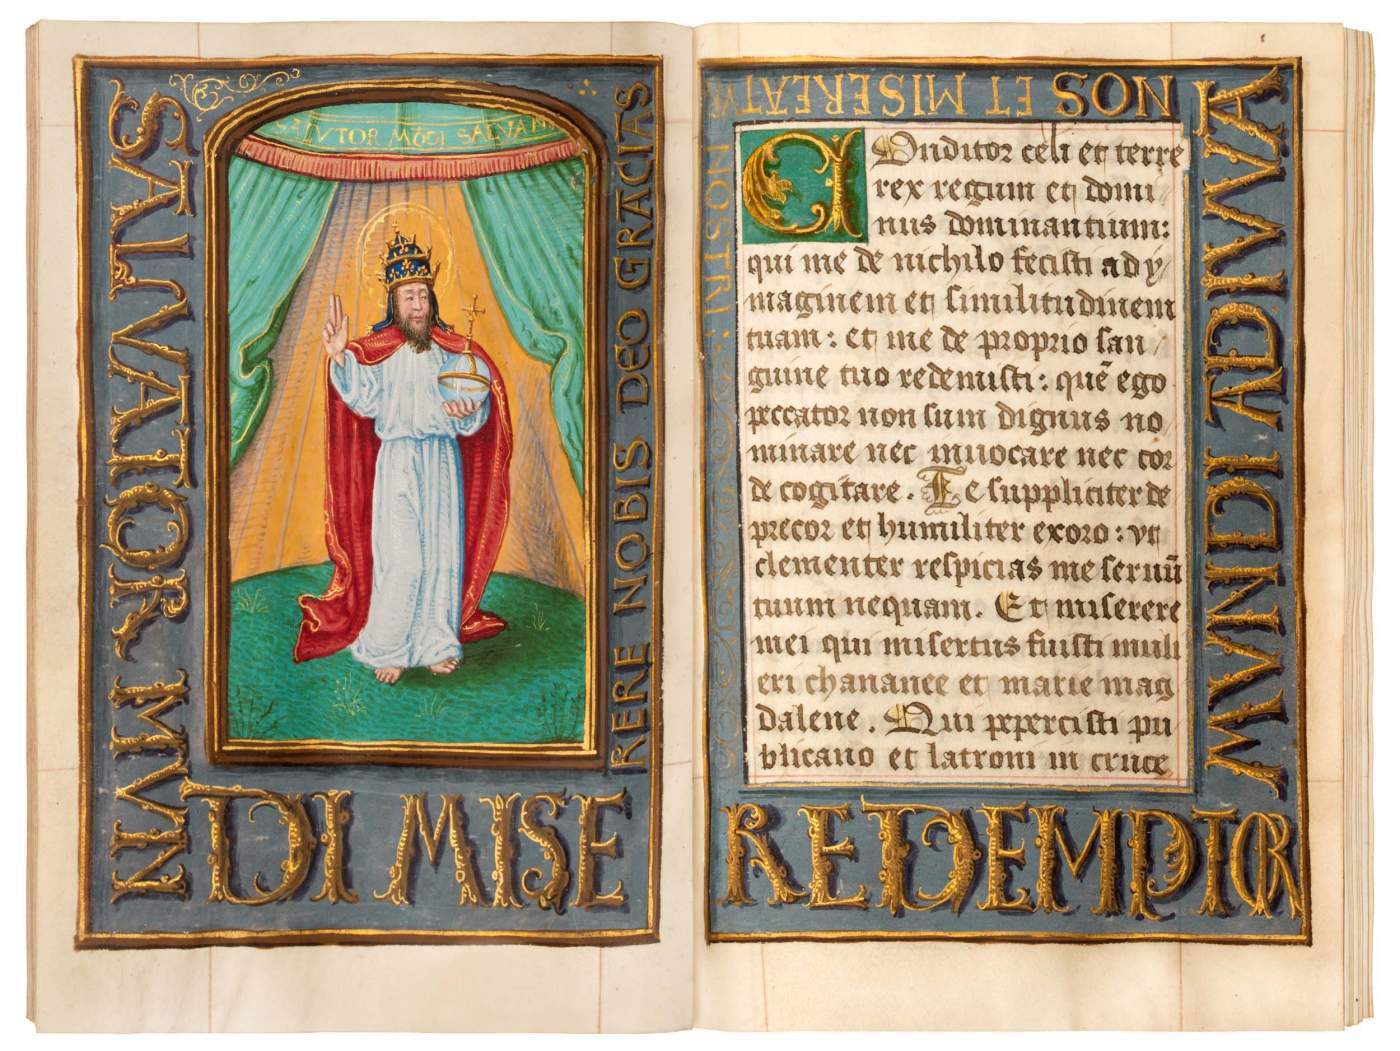 SALVATOR MVN
DI MISE
RERE NOBIS DEO GRACIAS
SALVTOR MŌDI SALVA
Conditor celi et terre
rex regum et domi
nus dominantium:
qui me de nichilo fecisti ad y
maginem et similitudinem
tuam: et me de proprio san
guine tuo redemisti: quē ego
peccator non sum dignus no
minare nec inuocare nec cor
de cogitare. Te suppliciter de
precor et humiliter exoro: vt
clementer respicias me seruū
tuum nequam. Et miserere
mei qui misertus fuisti muli
eri chananee et marie mag
dalene. Qui pepercisti pu
blicano et latroni in cruce
REDEMPTOR
MVNDI ADIVVA
NOS ET MISEREATVR
NOSTRI